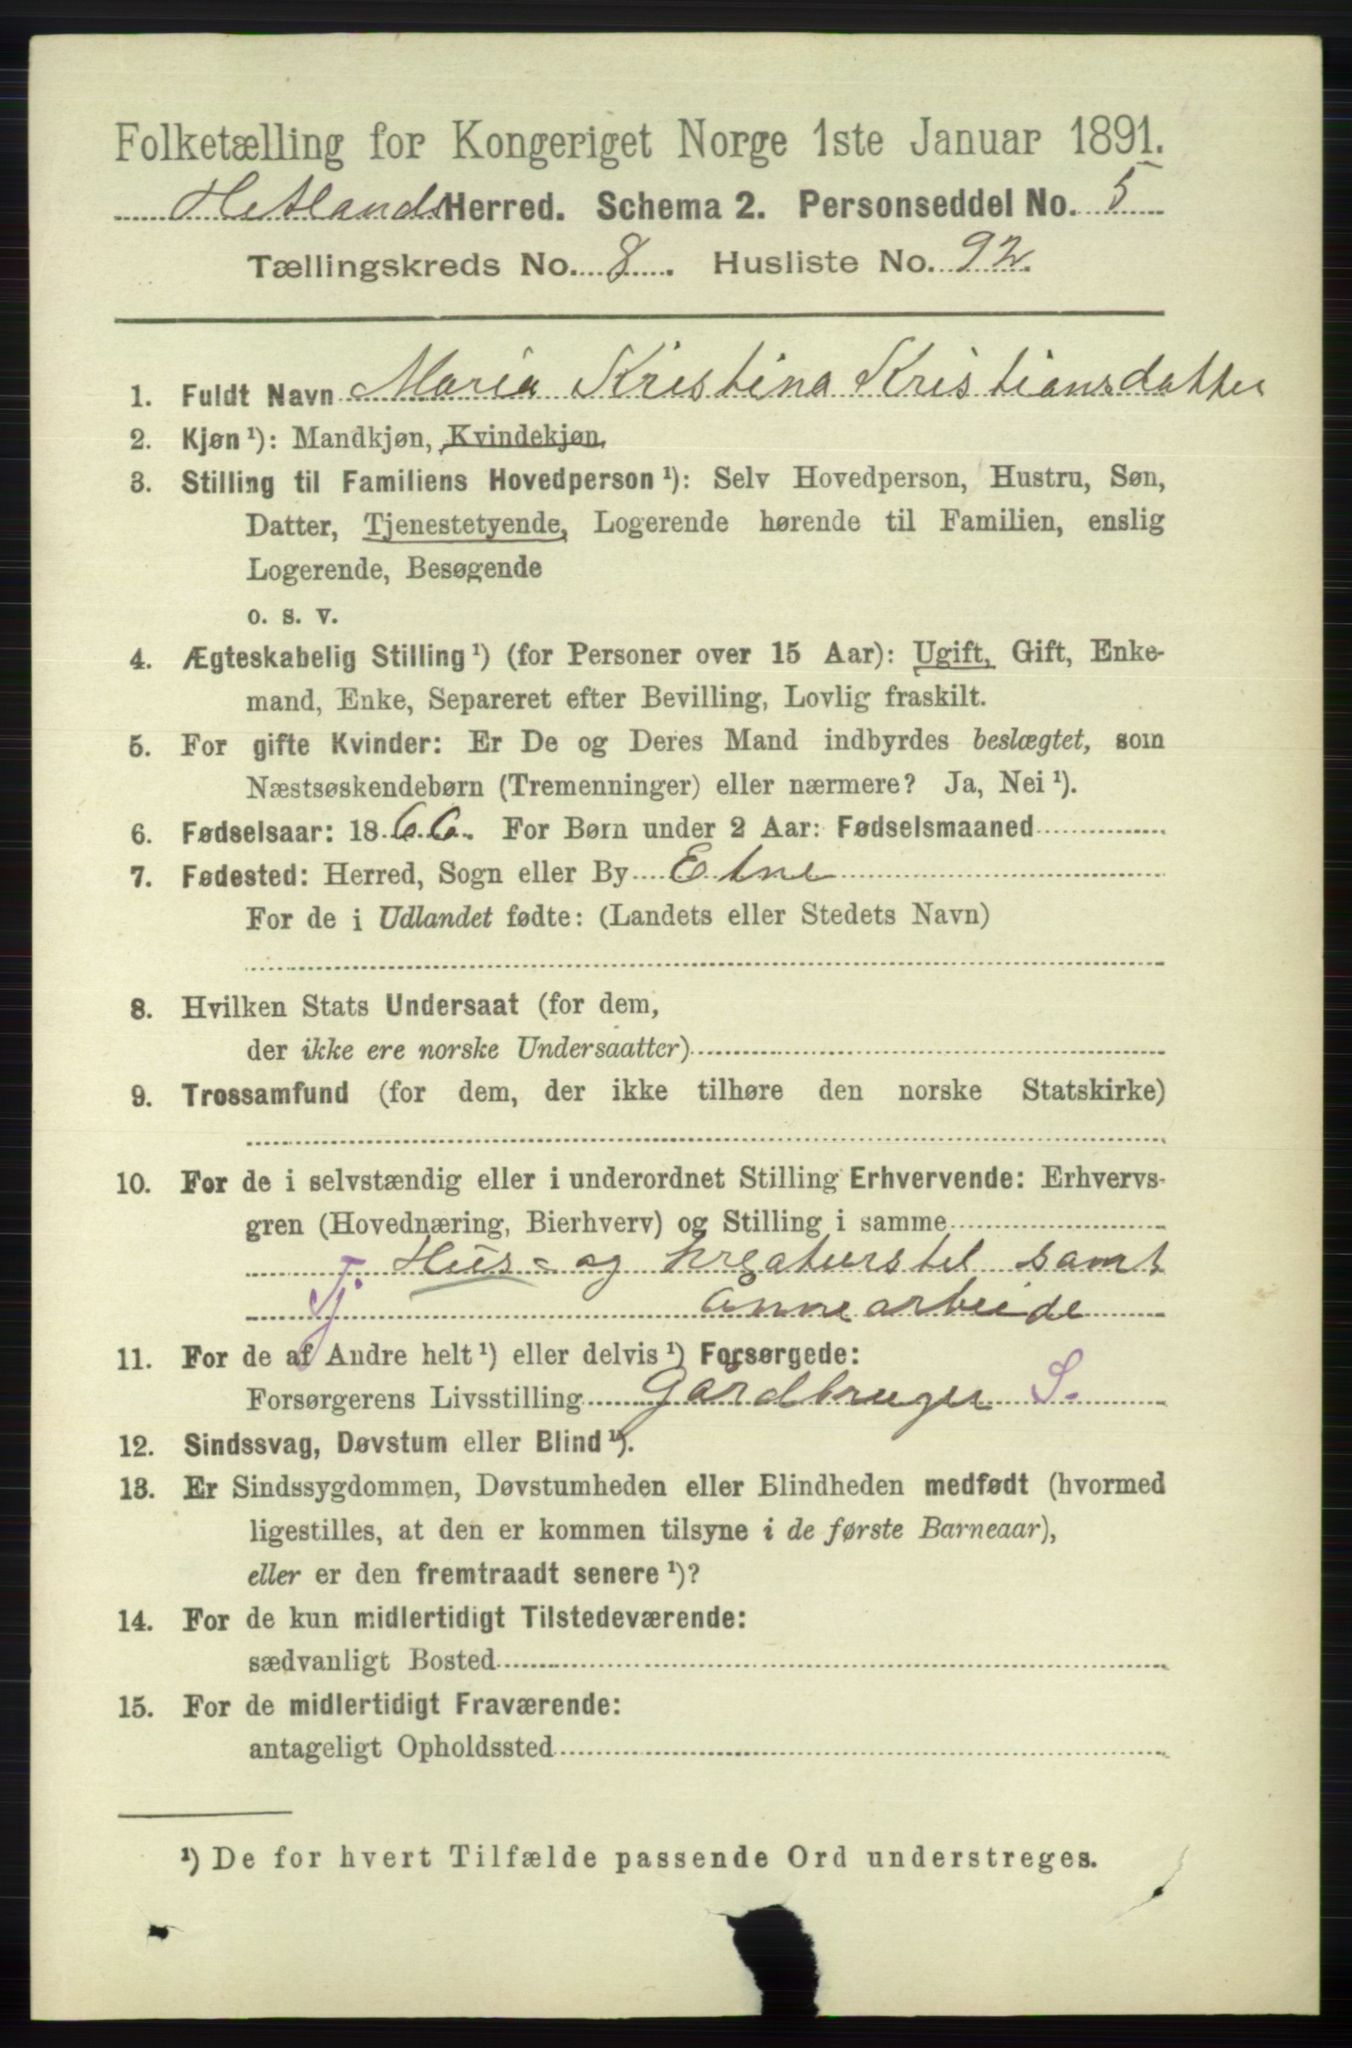 Folketælling for Kongeriget Norge 1ste Januar 1891.
Hetlands Herred. Schema 2. Personseddel No. 5
Tællingskreds No. 8. Husliste No. 92.
1. Fuldt Navn Maria Kristina Kristiansdatter
2. Kjøn ¹): Mandkjøn, Kvindekjøn.
3. Stilling til Familiens Hovedperson ¹): Selv Hovedperson, Hustru, Søn,
Datter, Tjenestetyende, Logerende hørende til Familien, enslig
Logerende, Besøgende
o. s. v.
4. Ægteskabelig Stilling ¹) (for Personer over 15 Aar): Ugift, Gift, Enke-
mand, Enke, Separeret efter Bevilling, Lovlig fraskilt.
5. For gifte Kvinder: Er De og Deres Mand indbyrdes beslægtet, som
Næstsøskendebørn (Tremenninger) eller nærmere? Ja, Nei ¹).
6. Fødselsaar: 1866. For Børn under 2 Aar: Fødselsmaaned
7. Fødested: Herred, Sogn eller By Etne
For de i Udlandet fødte: (Landets eller Stedets Navn)
8. Hvilken Stats Undersaat (for dem,
der ikke ere norske Undersaatter)
9. Trossamfund (for dem, der ikke tilhøre den norske Statskirke)
10. For de i selvstændig eller i underordnet Stilling Erhvervende: Erhvervs-
gren (Hovednæring, Bierhverv) og Stilling i samme
Tj. Hus- og kreaturstel samt
ånnearbeide
11. For de af Andre helt ¹) eller delvis ¹) Forsørgede:
Forsørgerens Livsstilling Gårdbruger S.
12. Sindssvag, Døvstum eller Blind ¹).
13. Er Sindssygdommen, Døvstumheden eller Blindheden medfødt (hvormed
ligestilles, at den er kommen tilsyne i de første Barneaar),
eller er den fremtraadt senere ¹)?
14. For de kun midlertidigt Tilstedeværende:
sædvanligt Bosted
15. For de midlertidigt Fraværende:
antageligt Opholdssted
¹) De for hvert Tilfælde passende Ord understreges.